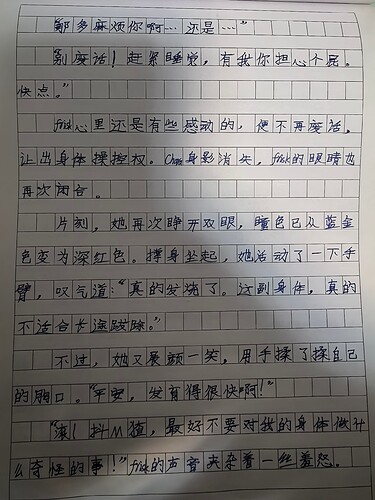 那多麻烦你啊…还是…”
“别废话！赶紧睡觉，有我你担心个屁。
快点。”
frisk心里还是有些感动的，便不再废话，
让出身体操控权。Chara身影消失，frisk的眼睛也
再次闭合。
片刻，她再次睁开双眼，瞳色已从蓝金
色变为深红色。撑身坐起，她活动了一下手
臂，叹气道：“真的发烧了。这副身体，真的
不适合长途跋涉。”
不过，她又展颜一笑，用手揉了揉自己
的胸口。“平安，发育得很快啊！”
“滚！抖M猹，最好不要对我的身体做什
么奇怪的事！”frisk的声音夹杂着一丝羞怒。